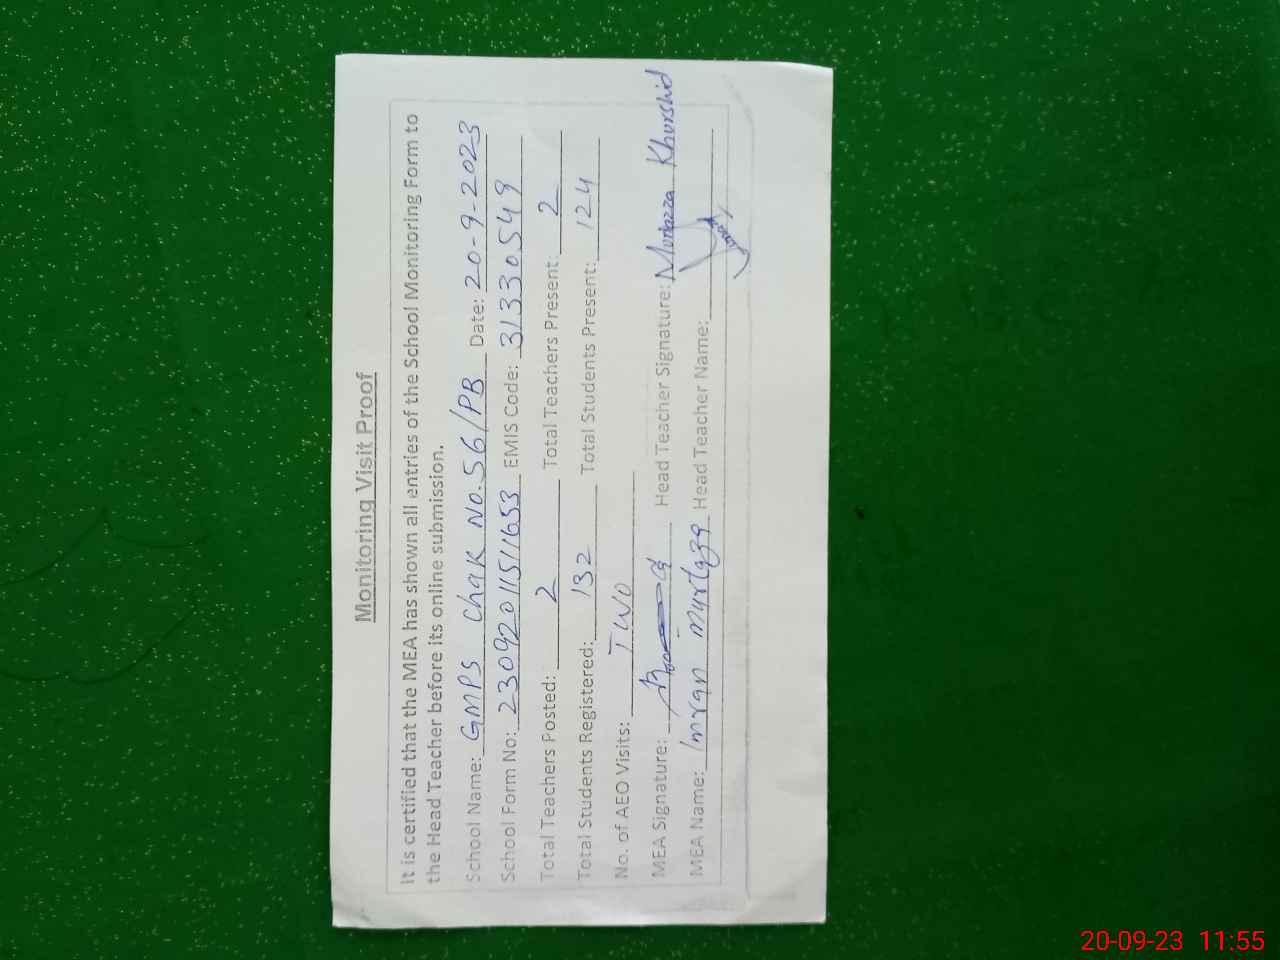 Monitoring Visit Proof
It is certified that the MEA has shown all entries of the School Monitoring Form to
the Head Teacher before its online submission.
School Name: GMPS Chak No. 56/PB Date: 20-9-2023
School Form No: 230920115111653 EMIS Code: 31330549
Total Teachers Posted: 2 Total Teachers Present: 2
Total Students Registered: 132 Total Students Present: 124
No. of AEO Visits: TWO
MEA Signature: Head Teacher Signature: Murtazza Khurshid
MEA Name: Imran murtaza Head Teacher Name:
20-09-23 11:55